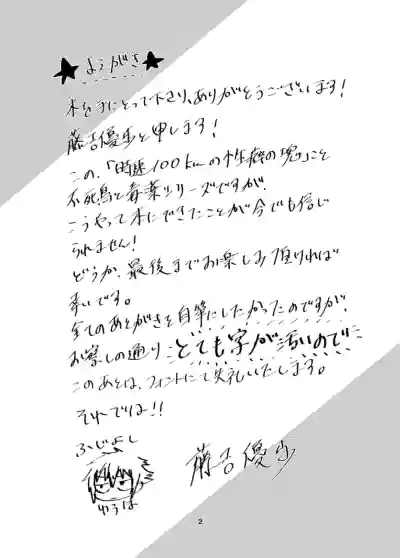 ★ まえがき ★
本を手にとって下さり、ありがとうございます！
藤吉優歩と申します！
この、「時速100kmの性癖の塊」こと
不死鳥と毒薬シリーズですが、
こうやって本にできたことが今でも信じ
られません！
どうか、最後までお楽しみ頂ければ
幸いです。
全てのあとがきを自筆にしたかったのですが、
お察しの通り、とても字が汚いので
このあとは、フォントにて失礼いたします。
それでは！！
ふじよし
ゆうほ
藤吉優歩
2